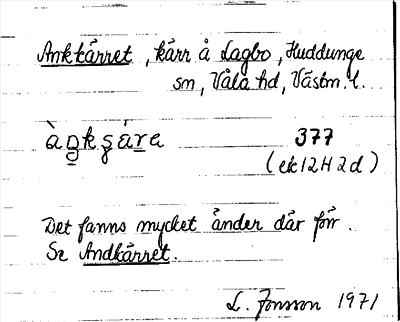 Ankkärret, kärr å Lagbo, Huddunge
sn, Våla hd, Västm. l.
àŋkʂá̤ra 377
(ek12H2d)
Det fanns mycket änder där förr.
Se Andkärret.
L. Jonsson 1971